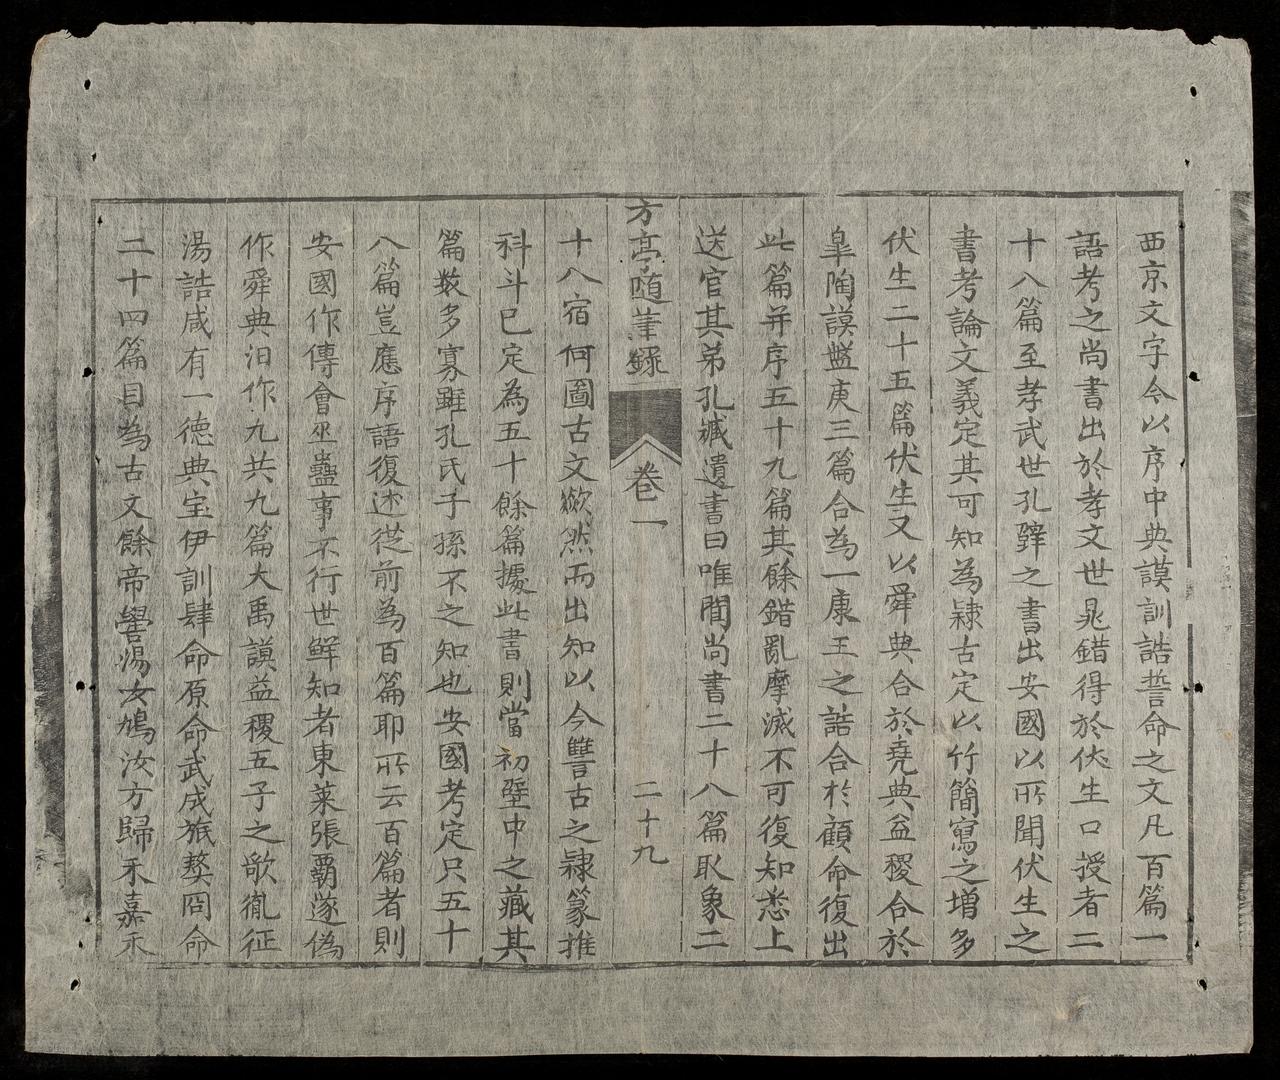 西京文字今以序中典謨訓誥誓命之文凡百篇一
語考之尚書出於孝文世晁錯得於伏生口授者二
十八篇至孝武世孔壁之書出安國以所聞伏生之
書考論文義定其可知為隸古定以竹簡寫之增多
伏生二十五篇伏生又以舜典合於堯典益稷合於
皐陶謨盤庚三篇合為一康王之誥合於顧命復出
此篇并序五十九篇其餘錯亂摩滅不可復知悉上
送官其弟孔臧遺書曰唯聞尚書二十八篇取象二
方亭随筆錄 卷一 二十九
十八宿何圖古文歘然而出知以今讐古之隸篆推
科斗已定為五十餘篇據此書則當初壁中之藏其
篇數多寡雖孔氏子孫不之知也安國考定只五十
八篇豈應序語復述從前為百篇耶所云百篇者則
安國作傳會巫蠱事不行世鮮知者東萊張覇遂偽
作舜典汨作九共九篇大禹謨益稷五子之歌胤征
湯誥咸有一德典宝伊訓肆命原命武成旅獒冏命
二十四篇目為古文餘帝嚳湯女鳩汝方歸禾嘉禾